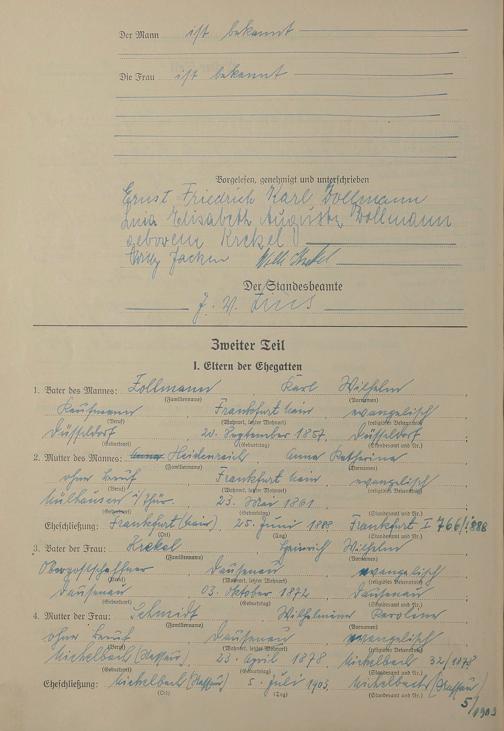 Der Mann ist bekannt
Die Frau ist bekannt
Vorgelesen, genehmigt und unterschrieben
Ernst Friedrich Karl Zollmann
Elisabeth Auguste Zollmann
geborene Krekel
Willi Krekel
Der Standesbeamte
J. V.
Zweiter Teil
I. Eltern der Ehegatten
1. Vater des Mannes: Zollmann Karl Wilhelm
(Familienname) (Vornamen)
Kaufmann Frankfurt Main evangelisch
(Beruf) (Wohnort, letzter Wohnort) (religiöses Bekenntnis)
Düsseldorf 20. September 1857 Düsseldorf
(Geburtsort) (Geburtstag) (Standesamt und Nr.)
2. Mutter des Mannes: Heidenreich Anna Katharina
(Familienname) (Vornamen)
ohne Beruf Frankfurt Main evangelisch
(Beruf) (Wohnort, letzter Wohnort) (religiöses Bekenntnis)
Mülhausen i/Thür. 23. Mai 1861
(Geburtsort) (Geburtstag) (Standesamt und Nr.)
Eheschließung: Frankfurt (Main) 25. Juni 1888 Frankfurt I 766/1888
(Ort) (Tag) (Standesamt und Nr.)
3. Vater der Frau: Krekel Heinrich Wilhelm
(Familienname) (Vornamen)
Oberpostschaffner Dausenau evangelisch
(Beruf) (Wohnort, letzter Wohnort) (religiöses Bekenntnis)
Dausenau 03. Oktober 1872 Dausenau
(Geburtsort) (Geburtstag) (Standesamt und Nr.)
4. Mutter der Frau: Schmidt Wilhelmine Karoline
(Familienname) (Vornamen)
ohne Beruf Dausenau evangelisch
(Beruf) (Wohnort, letzter Wohnort) (religiöses Bekenntnis)
Michelbach (Nassau) 23. April 1878 Michelbach 32/1878
(Geburtsort) (Geburtstag) (Standesamt und Nr.)
Eheschließung: Michelbach (Nassau) 5. Juli 1903 Michelbach (Nassau)
(Ort) (Tag) (Standesamt und Nr.)
5/1903